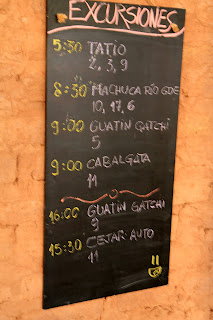 EXCURSIONES
5:30 TATIO
2, 3, 9
8:30 MACHUCA RÍO GDE
10, 17, 6
9:00 GUATIN GATCHI
5
9:00 CABALGATA
11
16:00 GUATIN GATCHI
9
15:30 CEJAR AUTO
11